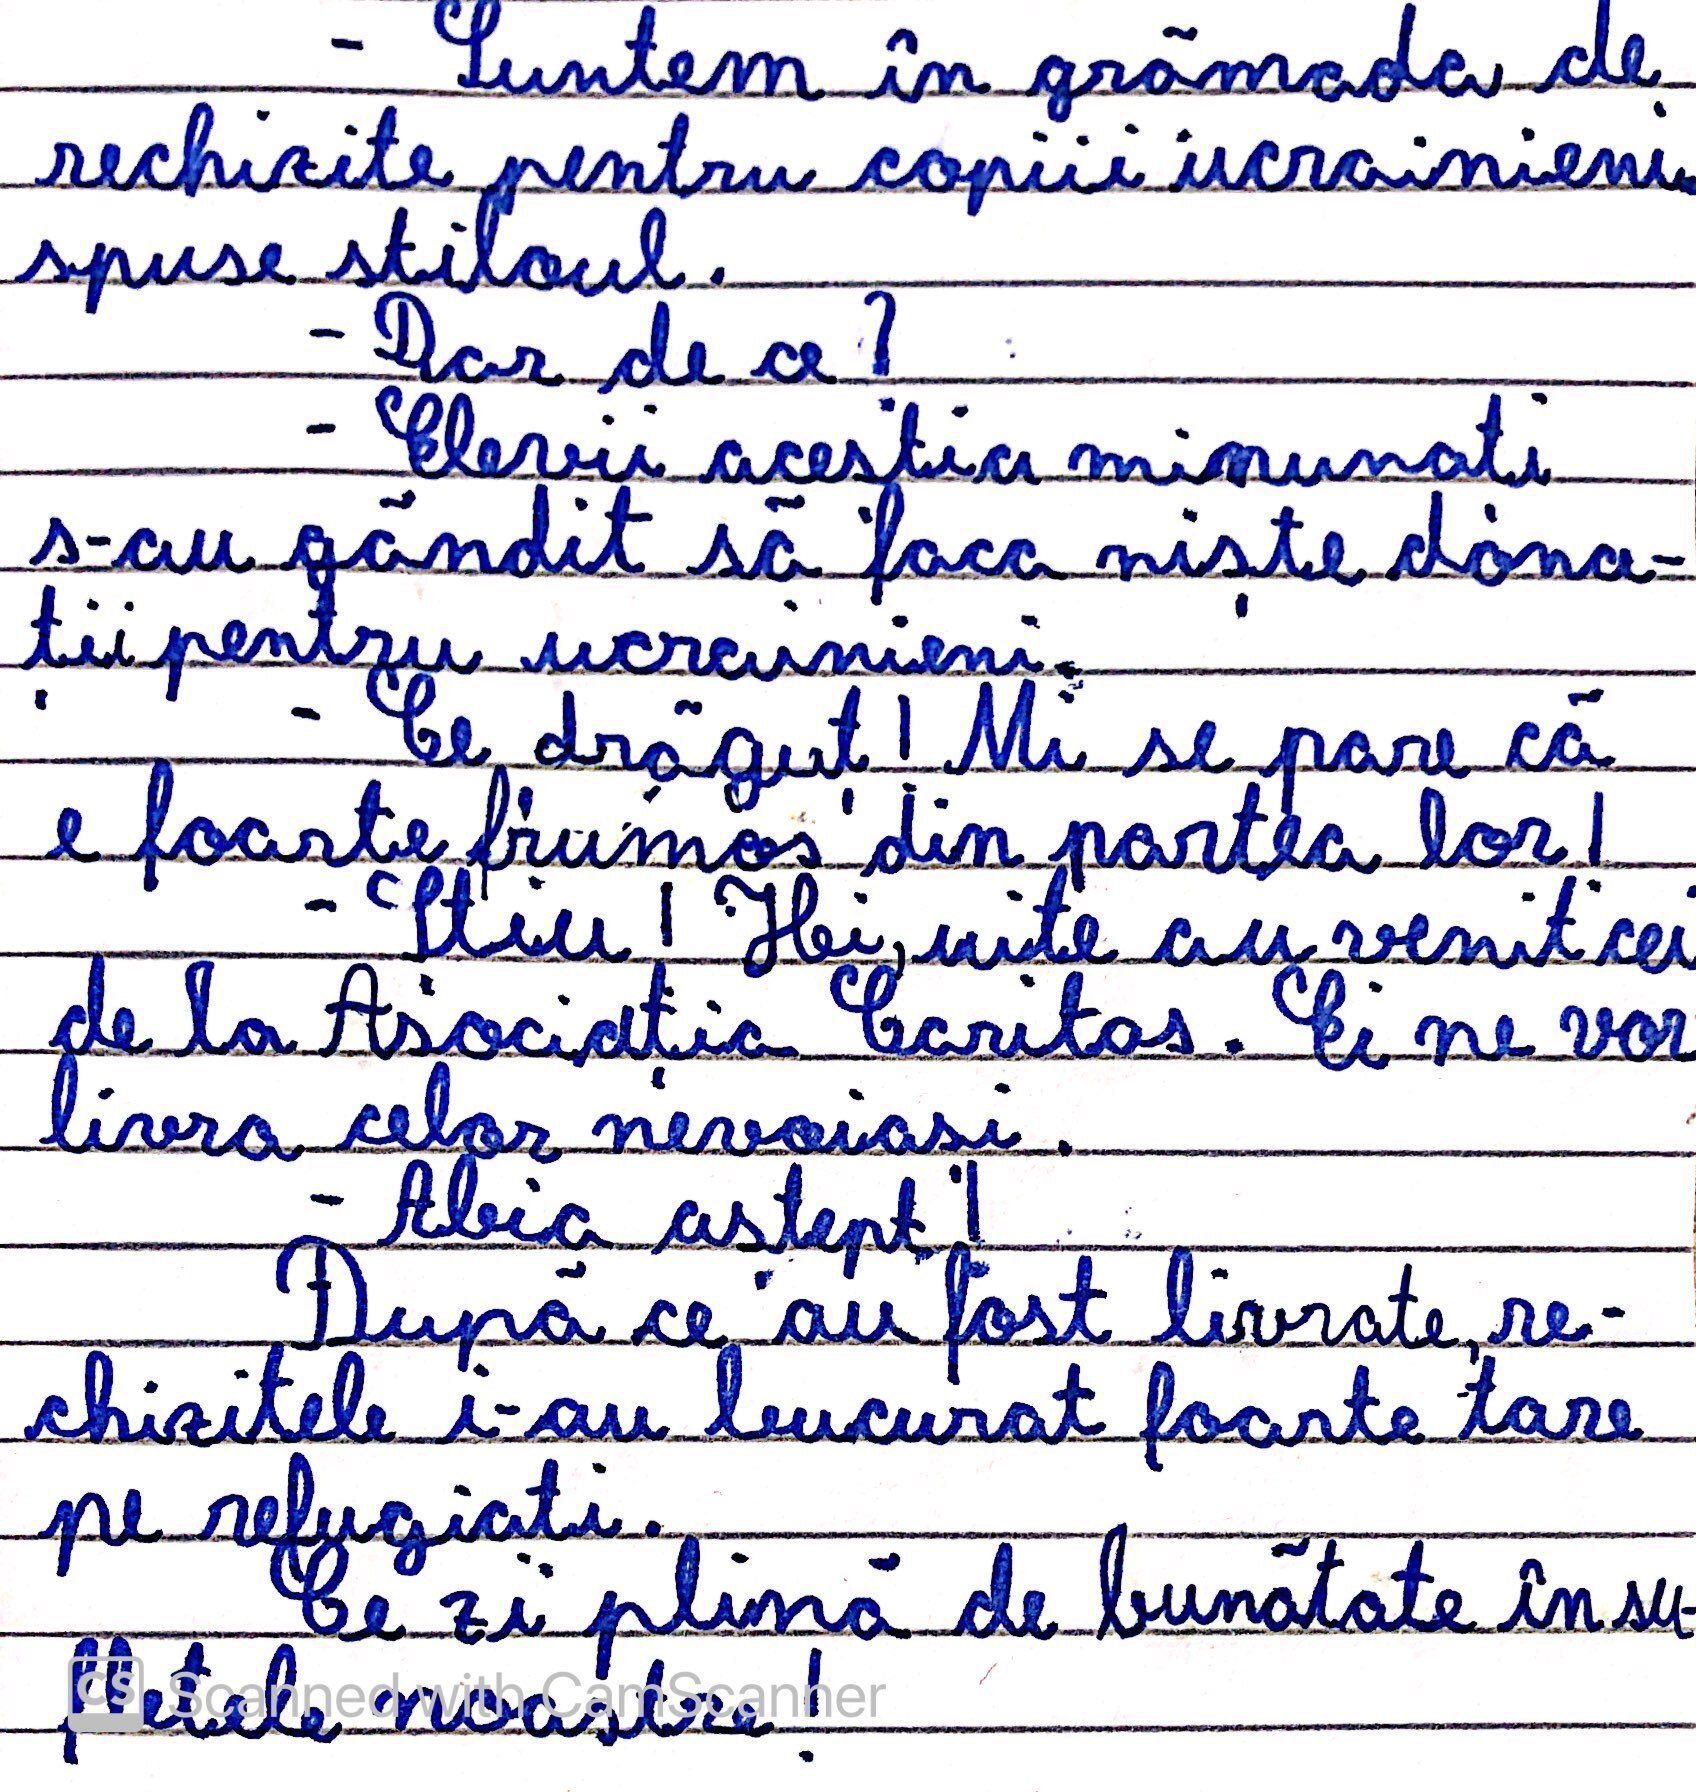 - Suntem în grămada de
rechizite pentru copiii ucrainieni.
spuse stiloul.
- Dar de ce?
- Elevii acestia minunati
s-au gândit să faca niște dona-
ții pentru ucrainieni.
- Ce drăguț! Mi se pare că
e foarte frumos din partea lor!
- Stiu! Hei, uite au venit cei
de la Asociația Caritas. Ei ne vor
livra celor nevoiasi.
- Abia astept!
După ce au fost livrate, re-
chizitele i-au bucurat foarte tare
pe refugiati.
Ce zi plină de bunătate în su-
fletele noastre!
CS Scanned with CamScanner